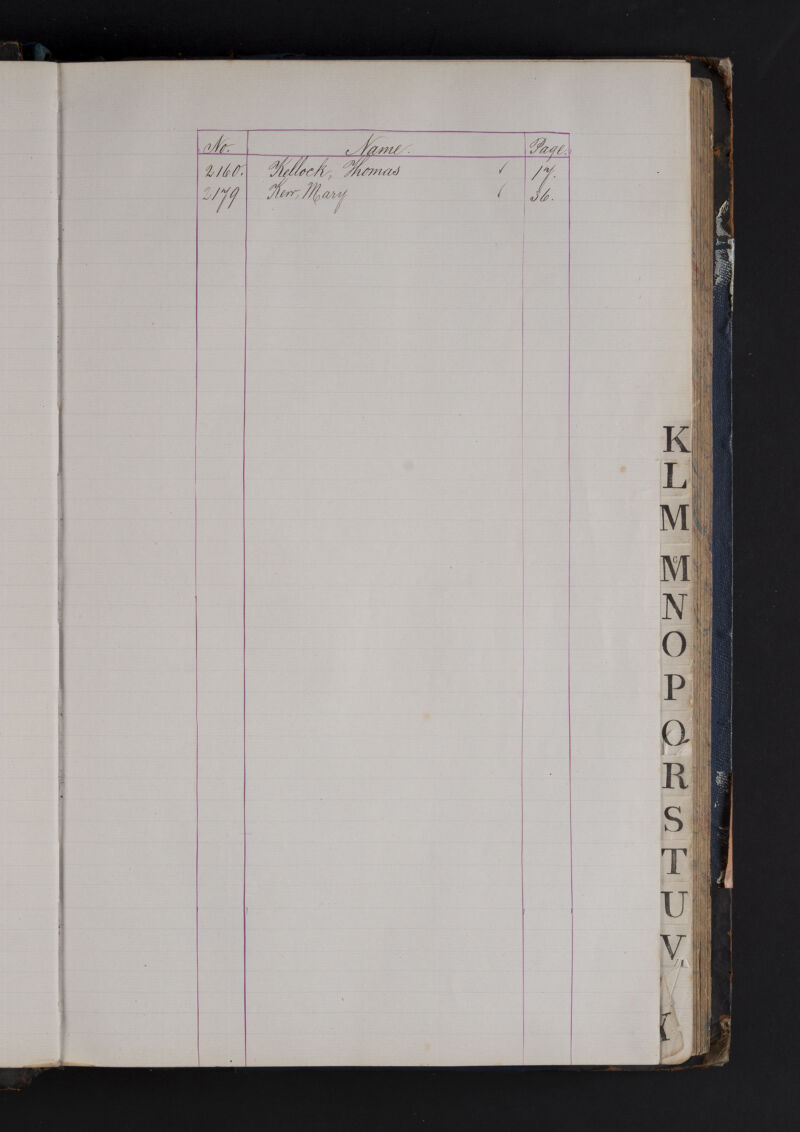 No. Name. Page.
2160. Kellock, Thomas ✓ 17.
2179 Kerr, Mary ✓ 36.
K
L
M
Mc
N
O
P
Q
R
S
T
U
V
Y